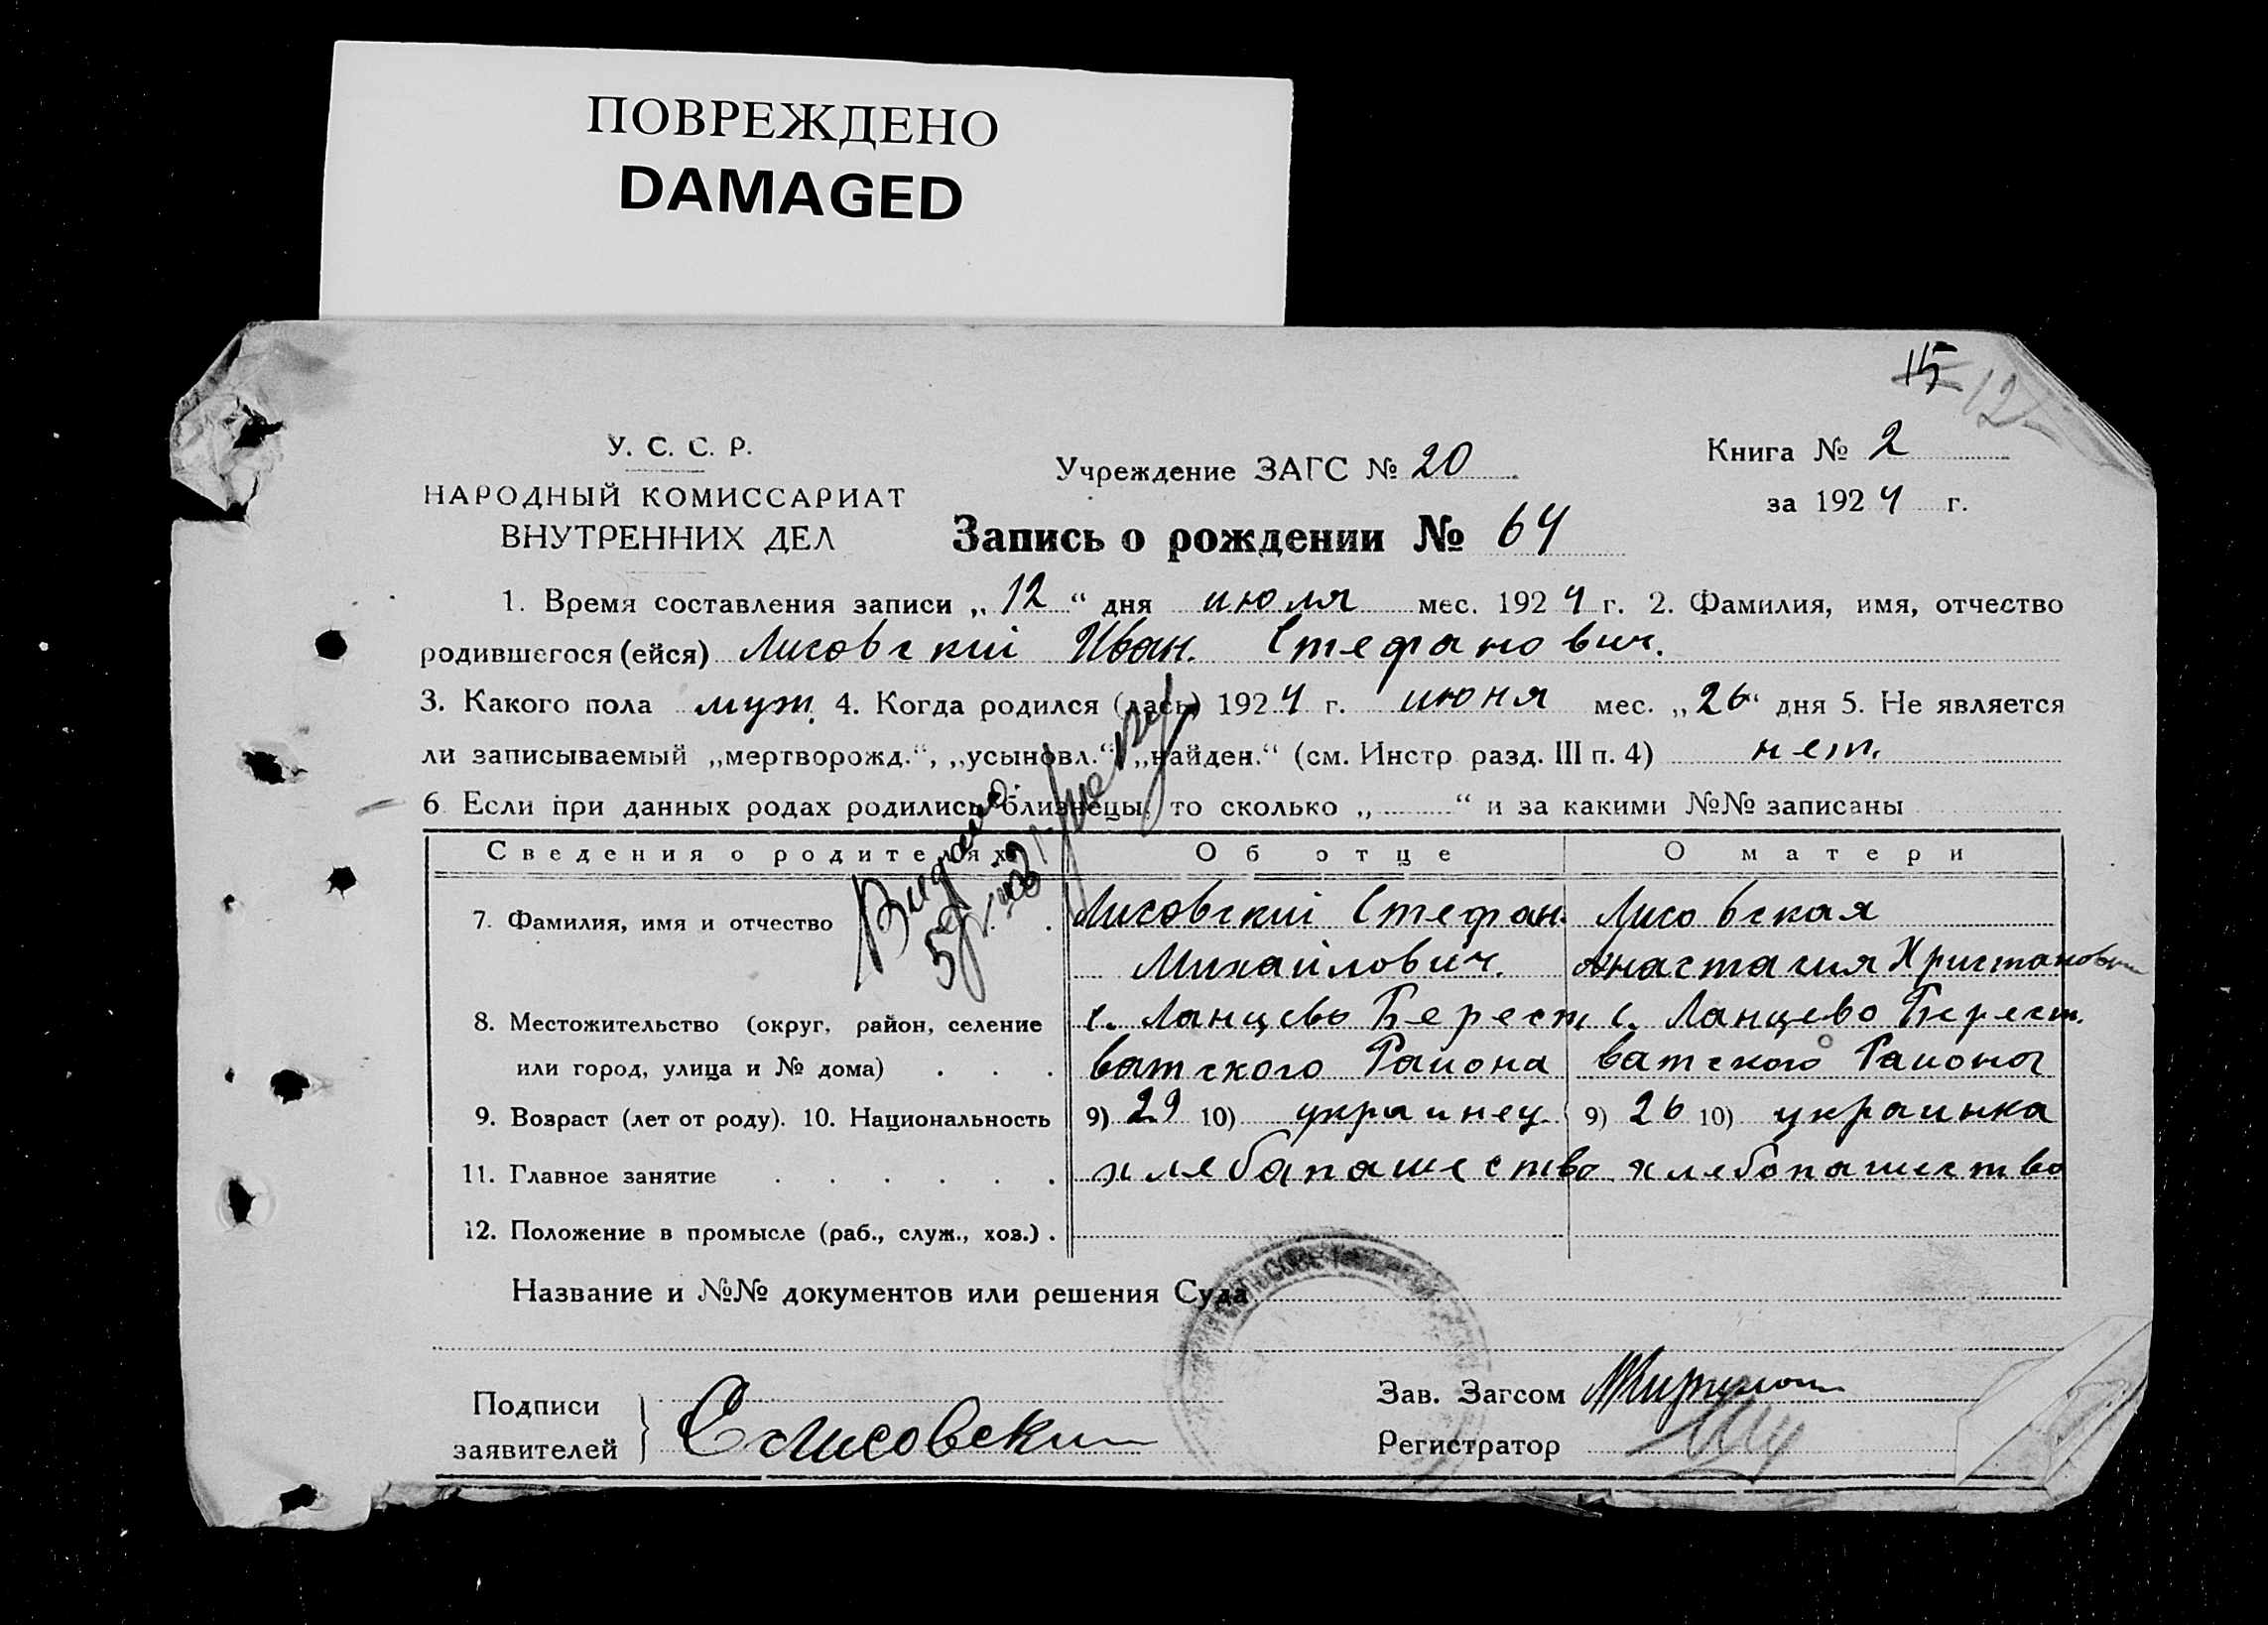 ПОВРЕЖДЕНО
DAMAGED
15 12
У. С. С. Р.
НАРОДНЫЙ КОМИССАРИАТ
ВНУТРЕННИХ ДЕЛ
Учреждение ЗАГС № 20
Книга № 2
за 1924 г.
Запись о рождении № 64
1. Время составления записи „12“ дня июля мес. 1924 г. 2. Фамилия, имя, отчество
родившегося (ейся) Лисовский Иван. Стефанович.
3. Какого пола муж. 4. Когда родился (лась) 1924 г. июня мес. „26“ дня 5. Не является
ли записываемый „мертворожд.“, „усыновл.“, „найден.“ (см. Инстр разд. III п. 4) нет.
6 Если при данных родах родились близнецы, то сколько „ “ и за какими №№ записаны
Сведения о родителях Об отце О матери
7. Фамилия, имя и отчество Лисовскиі Стефан. Лисовская
Михаилович. Анастасия
8. Местожительство (округ, район, селение с. Ланцево Берест с. Ланцево Берест.
или город, улица и № дома) ватского Раиона ватского Раиона
9. Возраст (лет от роду). 10. Национальность 9) 29 10) украинец. 9) 26 10) украинка
11. Главное занятие хлебапашество хлебопашество
12. Положение в промысле (раб., служ., хоз.)
Название и №№ документов или решения Суда
Подписи
заявителей
С Лисовский
Зав. Загсом
Регистратор